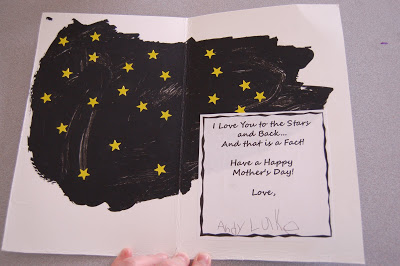 I Love You to the Stars
and Back...
And that is a Fact!
Have a Happy
Mother's Day!
Love,
Andy